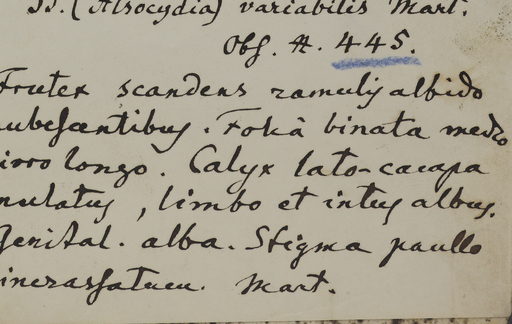 (Alsocydia) variabilis Mart.
Obs. H. 445.
Frutex scandens ramulis albido
pubescentibus. Folia binata medio
cirro longo. Calyx lato-campa
nulatus, limbo et intus albus.
Genital. alba. Stigma paullo
incrassatum. Mart.